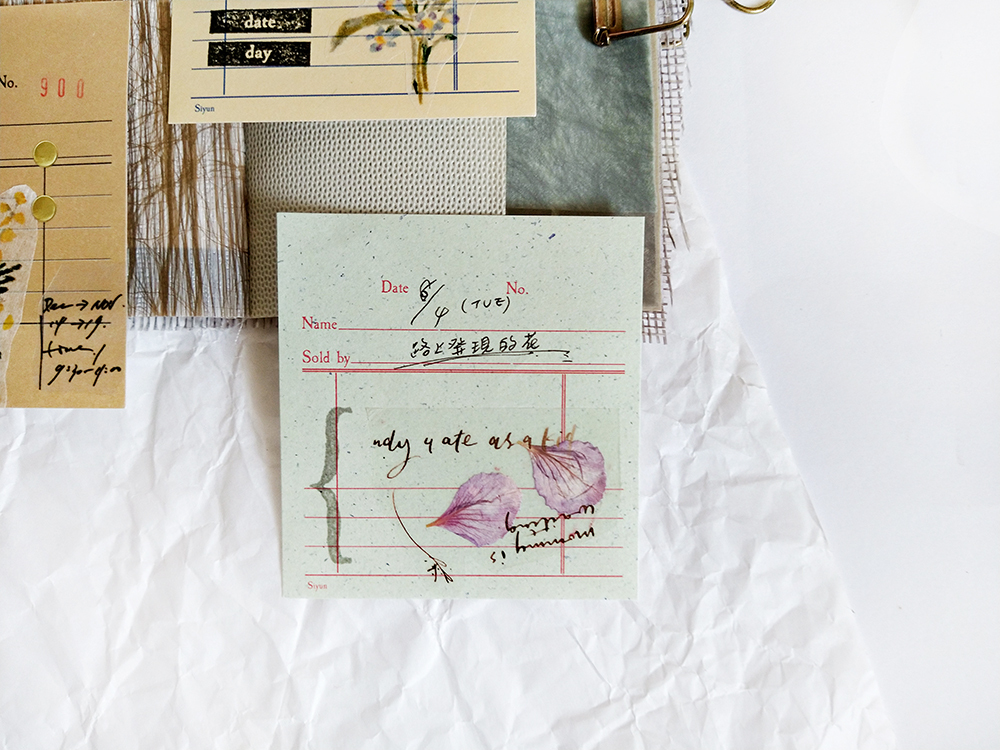 date
day
Siyun
No. 900
Dec → Nov.
time /
Date 5/4 (TUE) No.
Name
Sold by 路上發現的花
ndy y ate as a kid
mommy is
waiting
Siyun